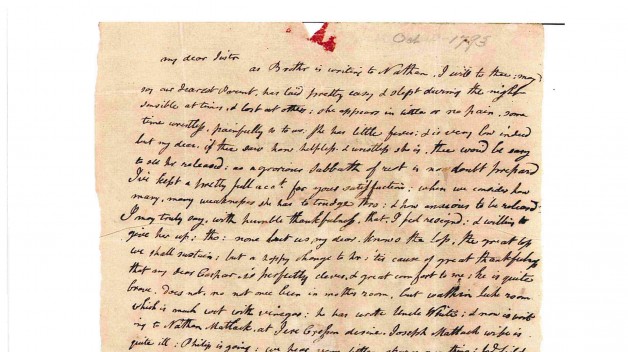 Oct 1795
my dear Sister
as Brother is writing to Nathan, I will to thee; may
say our dearest Parent, has laid pretty easy, & slept during the night
sensible at times, & lost at others; she appears in little or no pain, some
time wrestless, painfully so to us. She has little fever; & is very low indeed
but my dear, if thee saw how helpless, & wrestless she is, thee would be easy
to see her released; as a glorious Sabbath of rest is no doubt prepared
I've kept a pretty full acct. for your satisfaction; when we consider how
many, many weaknesses she has to trudge thro; & how anxious to be released
I may truly say, with humble thankfulness, that, I feel resigned; & willing to
give her up; tho; none but us, my dear, knows the loss, the great loss
we shall sustain; but a happy change to her; tis cause of great thankfulness
that my dear Caspar, is perfectly clever, & great comfort to me; he is quite
brave, does not, no not once been in mother room, but within
which is much wet with vinegar; he has wrote Uncle White; & now is writ
ing to Nathan Matlack, at desire. Joseph Matlack wife is
quite ill; Philip is going; we hear very little